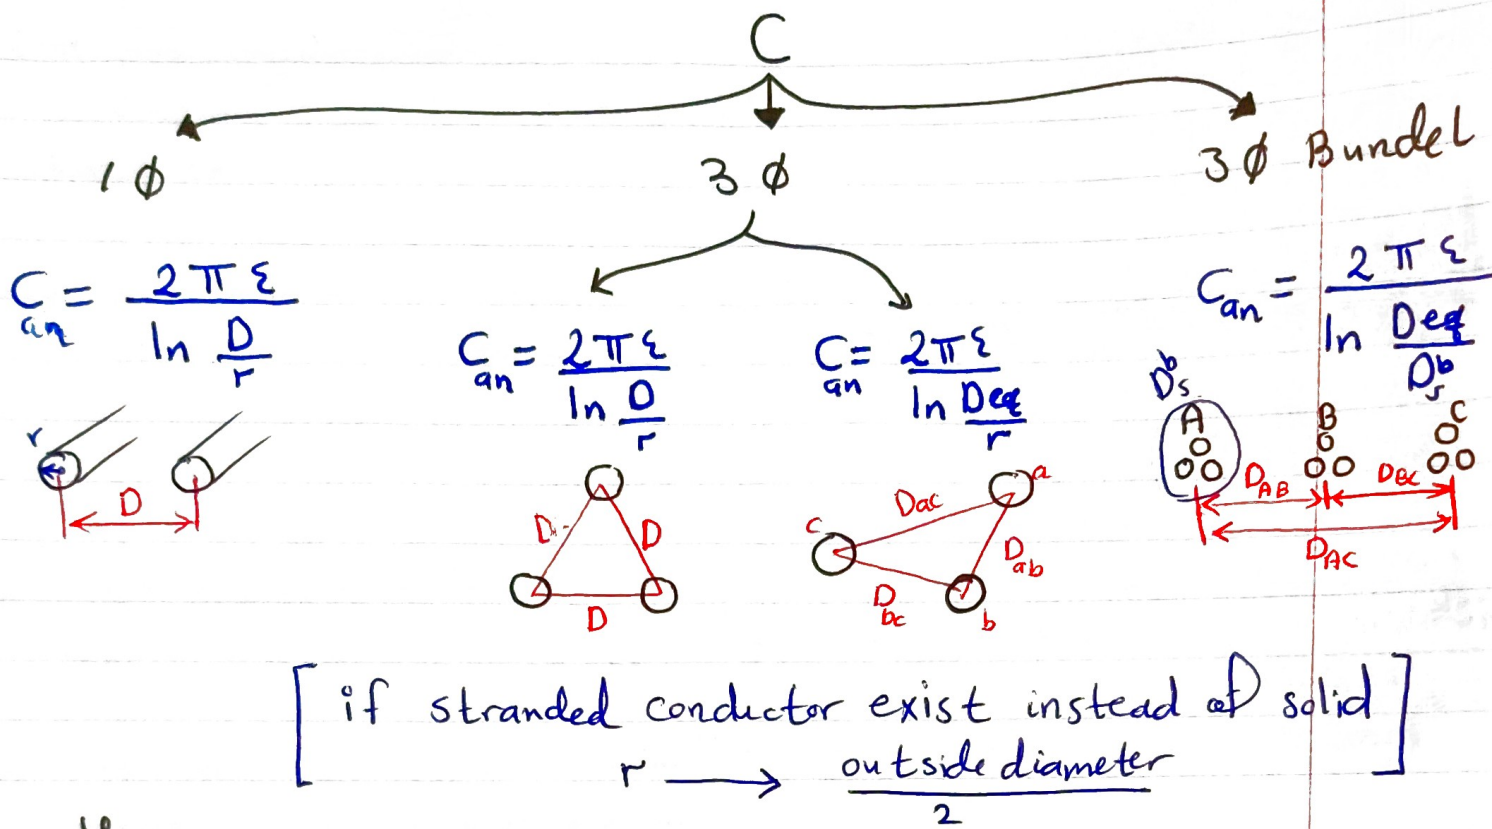 C
1ϕ 3ϕ 3ϕ Bundel
C_an = 2πε / ln D/r
C_an = 2πε / ln D/r
C_an = 2πε / ln Deq/r
C_an = 2πε / ln Deq/D_s^b
r
D
D D
D
a
c
b
Dac
D_ab
D_bc
D_s^b
A B C
D_AB D_BC
D_AC
[ if stranded conductor exist instead of solid ]
r → outside diameter / 2